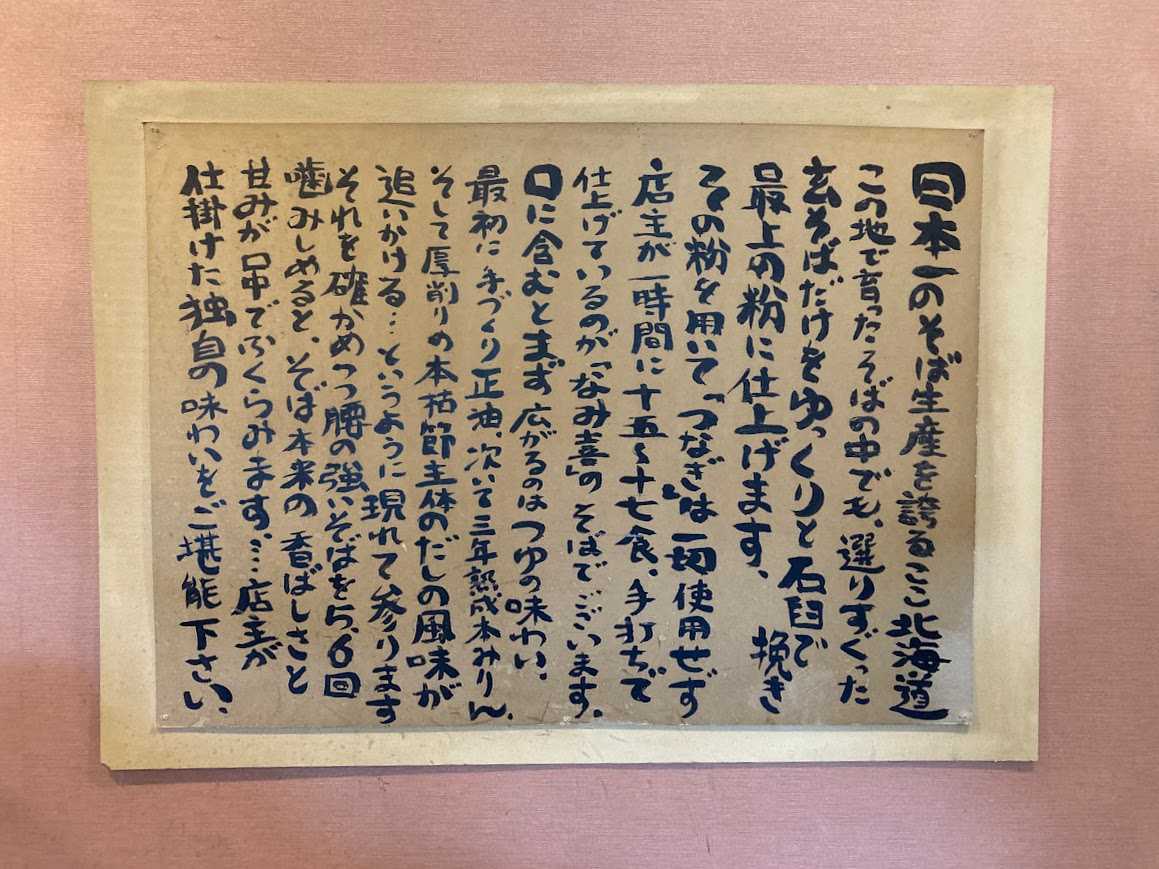 日本一のそば生産を誇るここ北海道
この地で育ったそばの中でも、選りすぐった
玄そばだけをゆっくりと石臼で挽き
最上の粉に仕上げます、
この粉を用いて「つなぎ」は一切使用せず
店主が一時間に十五〜十七食、手打ちで
仕上げているのが「なみ喜」のそばでございます、
口に含むとまず広がるのはつゆの味わい、
最初に手づくり正油、次いで三年熟成本みりん、
そして厚削りの本枯節主体のだしの風味が
追いかける…というように現れて参ります
それを確かめつつ腰の強いそばを5、6回
噛みしめると、そば本来の香ばしさと
甘みが口中でふくらみます、…店主が
仕掛けた独自の味わいをご堪能下さい、